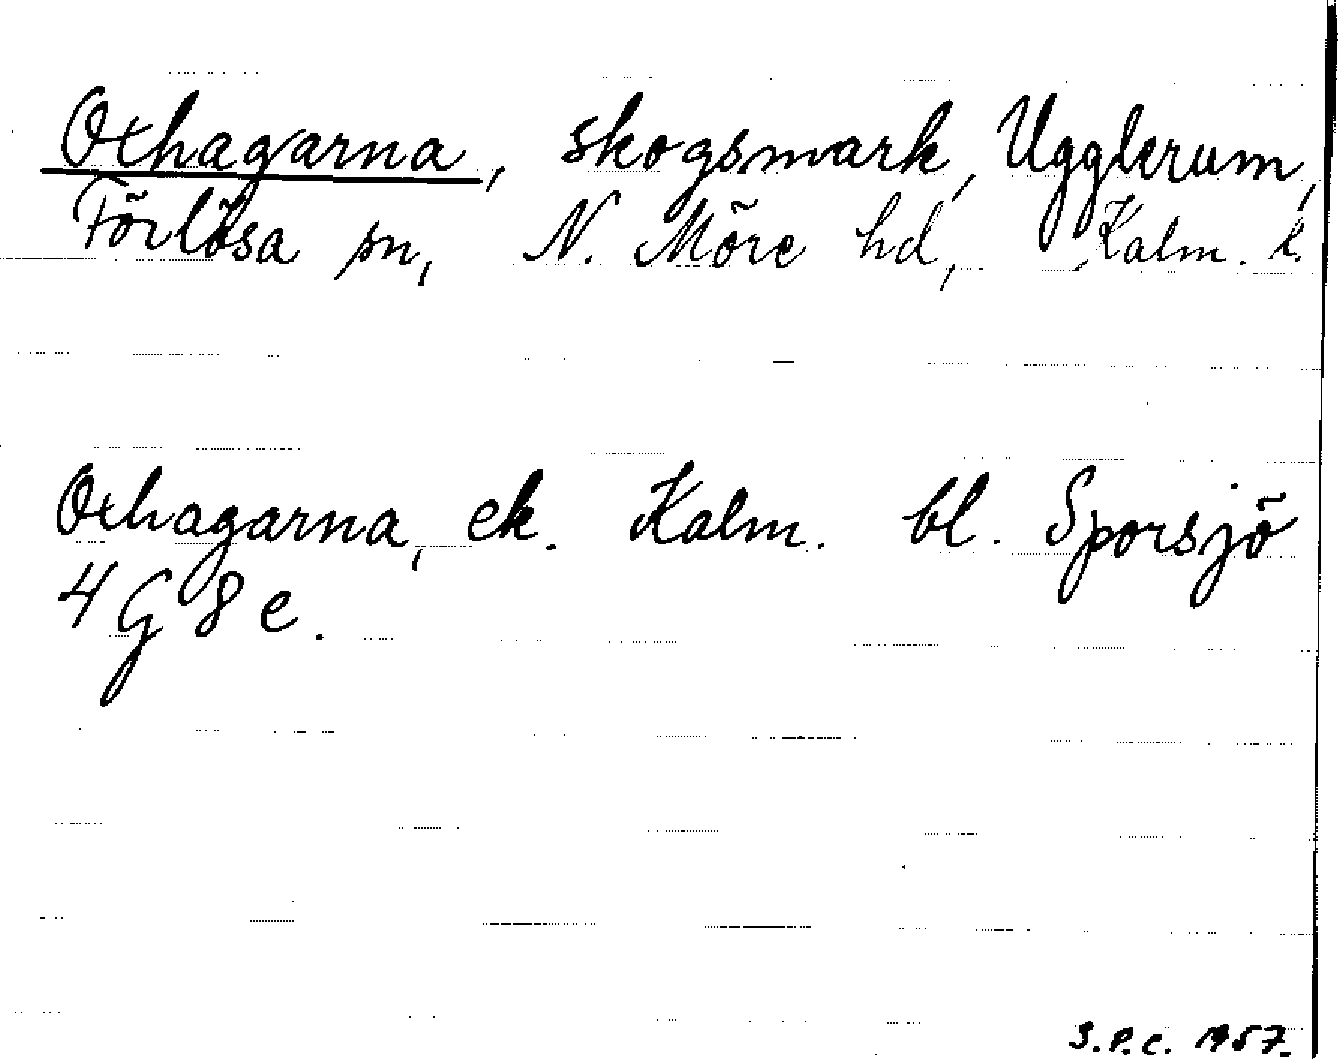 Oxhagarna, skogsmark, Ugglerum,
Förlösa sn, N. Möre hd, Kalm. l.
Oxhagarna, ek. Kalm. bl. Sporsjö
4 G 8 e.
S.P.C. 1957.